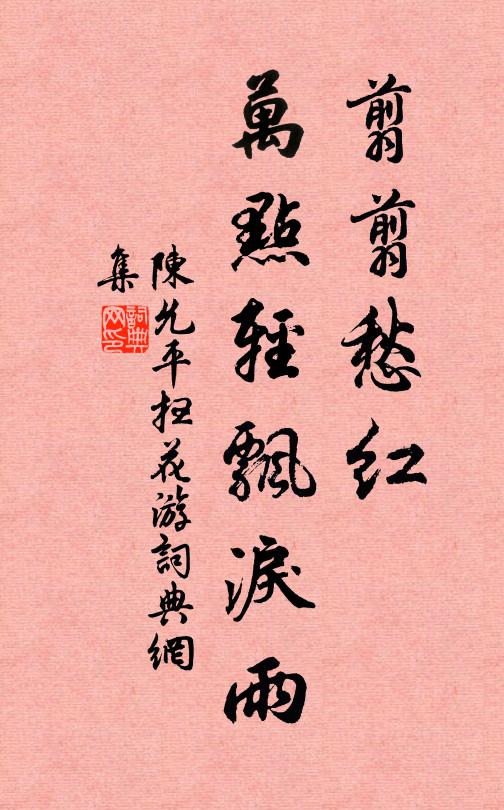 翦翦愁紅
萬點輕飄淚雨
陳允平掃花游詞典網
集
詞典
网印